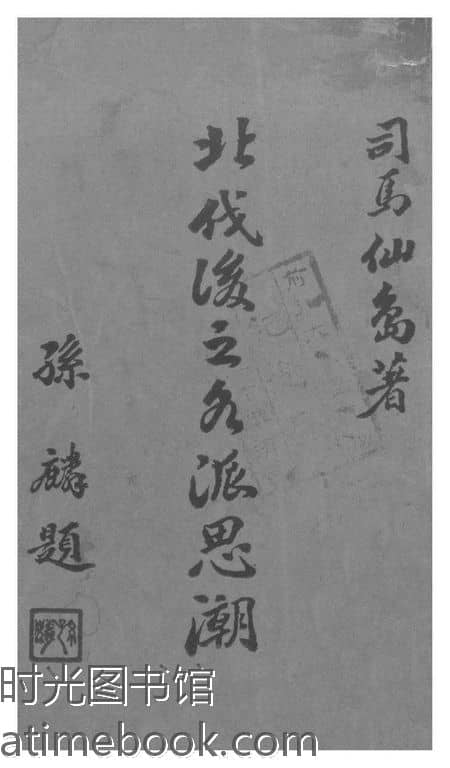 司馬仙島著
北伐後之各派思潮
孫麟題
时光图书馆
atimebook.com